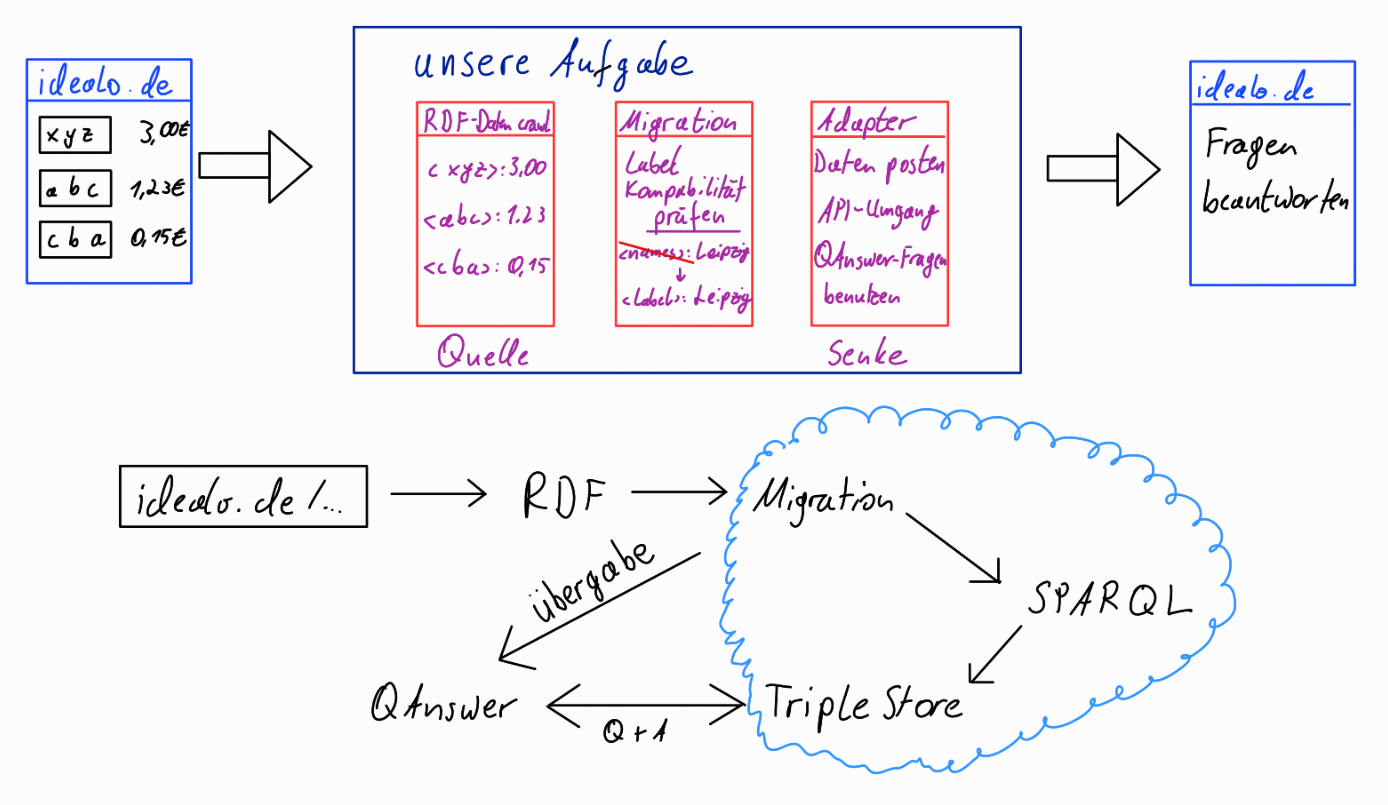 unsere Aufgabe
idealo.de
xyz 3,00€
abc 1,23€
cba 0,15€
RDF-Daten crawl
<xyz>:3,00
<abc>:1.23
<cba>:0,15
Quelle
Migration
Label
Kompabilität
prüfen
<names>:Leipzig
<label>:Leipzig
Adapter
Daten posten
API-Umgang
QAnswer-Fragen
benutzen
Senke
idealo.de
Fragen
beantworten
idealo.de/...
RDF
Migration
übergabe
SPARQL
QAnswer
Q+A
Triple Store